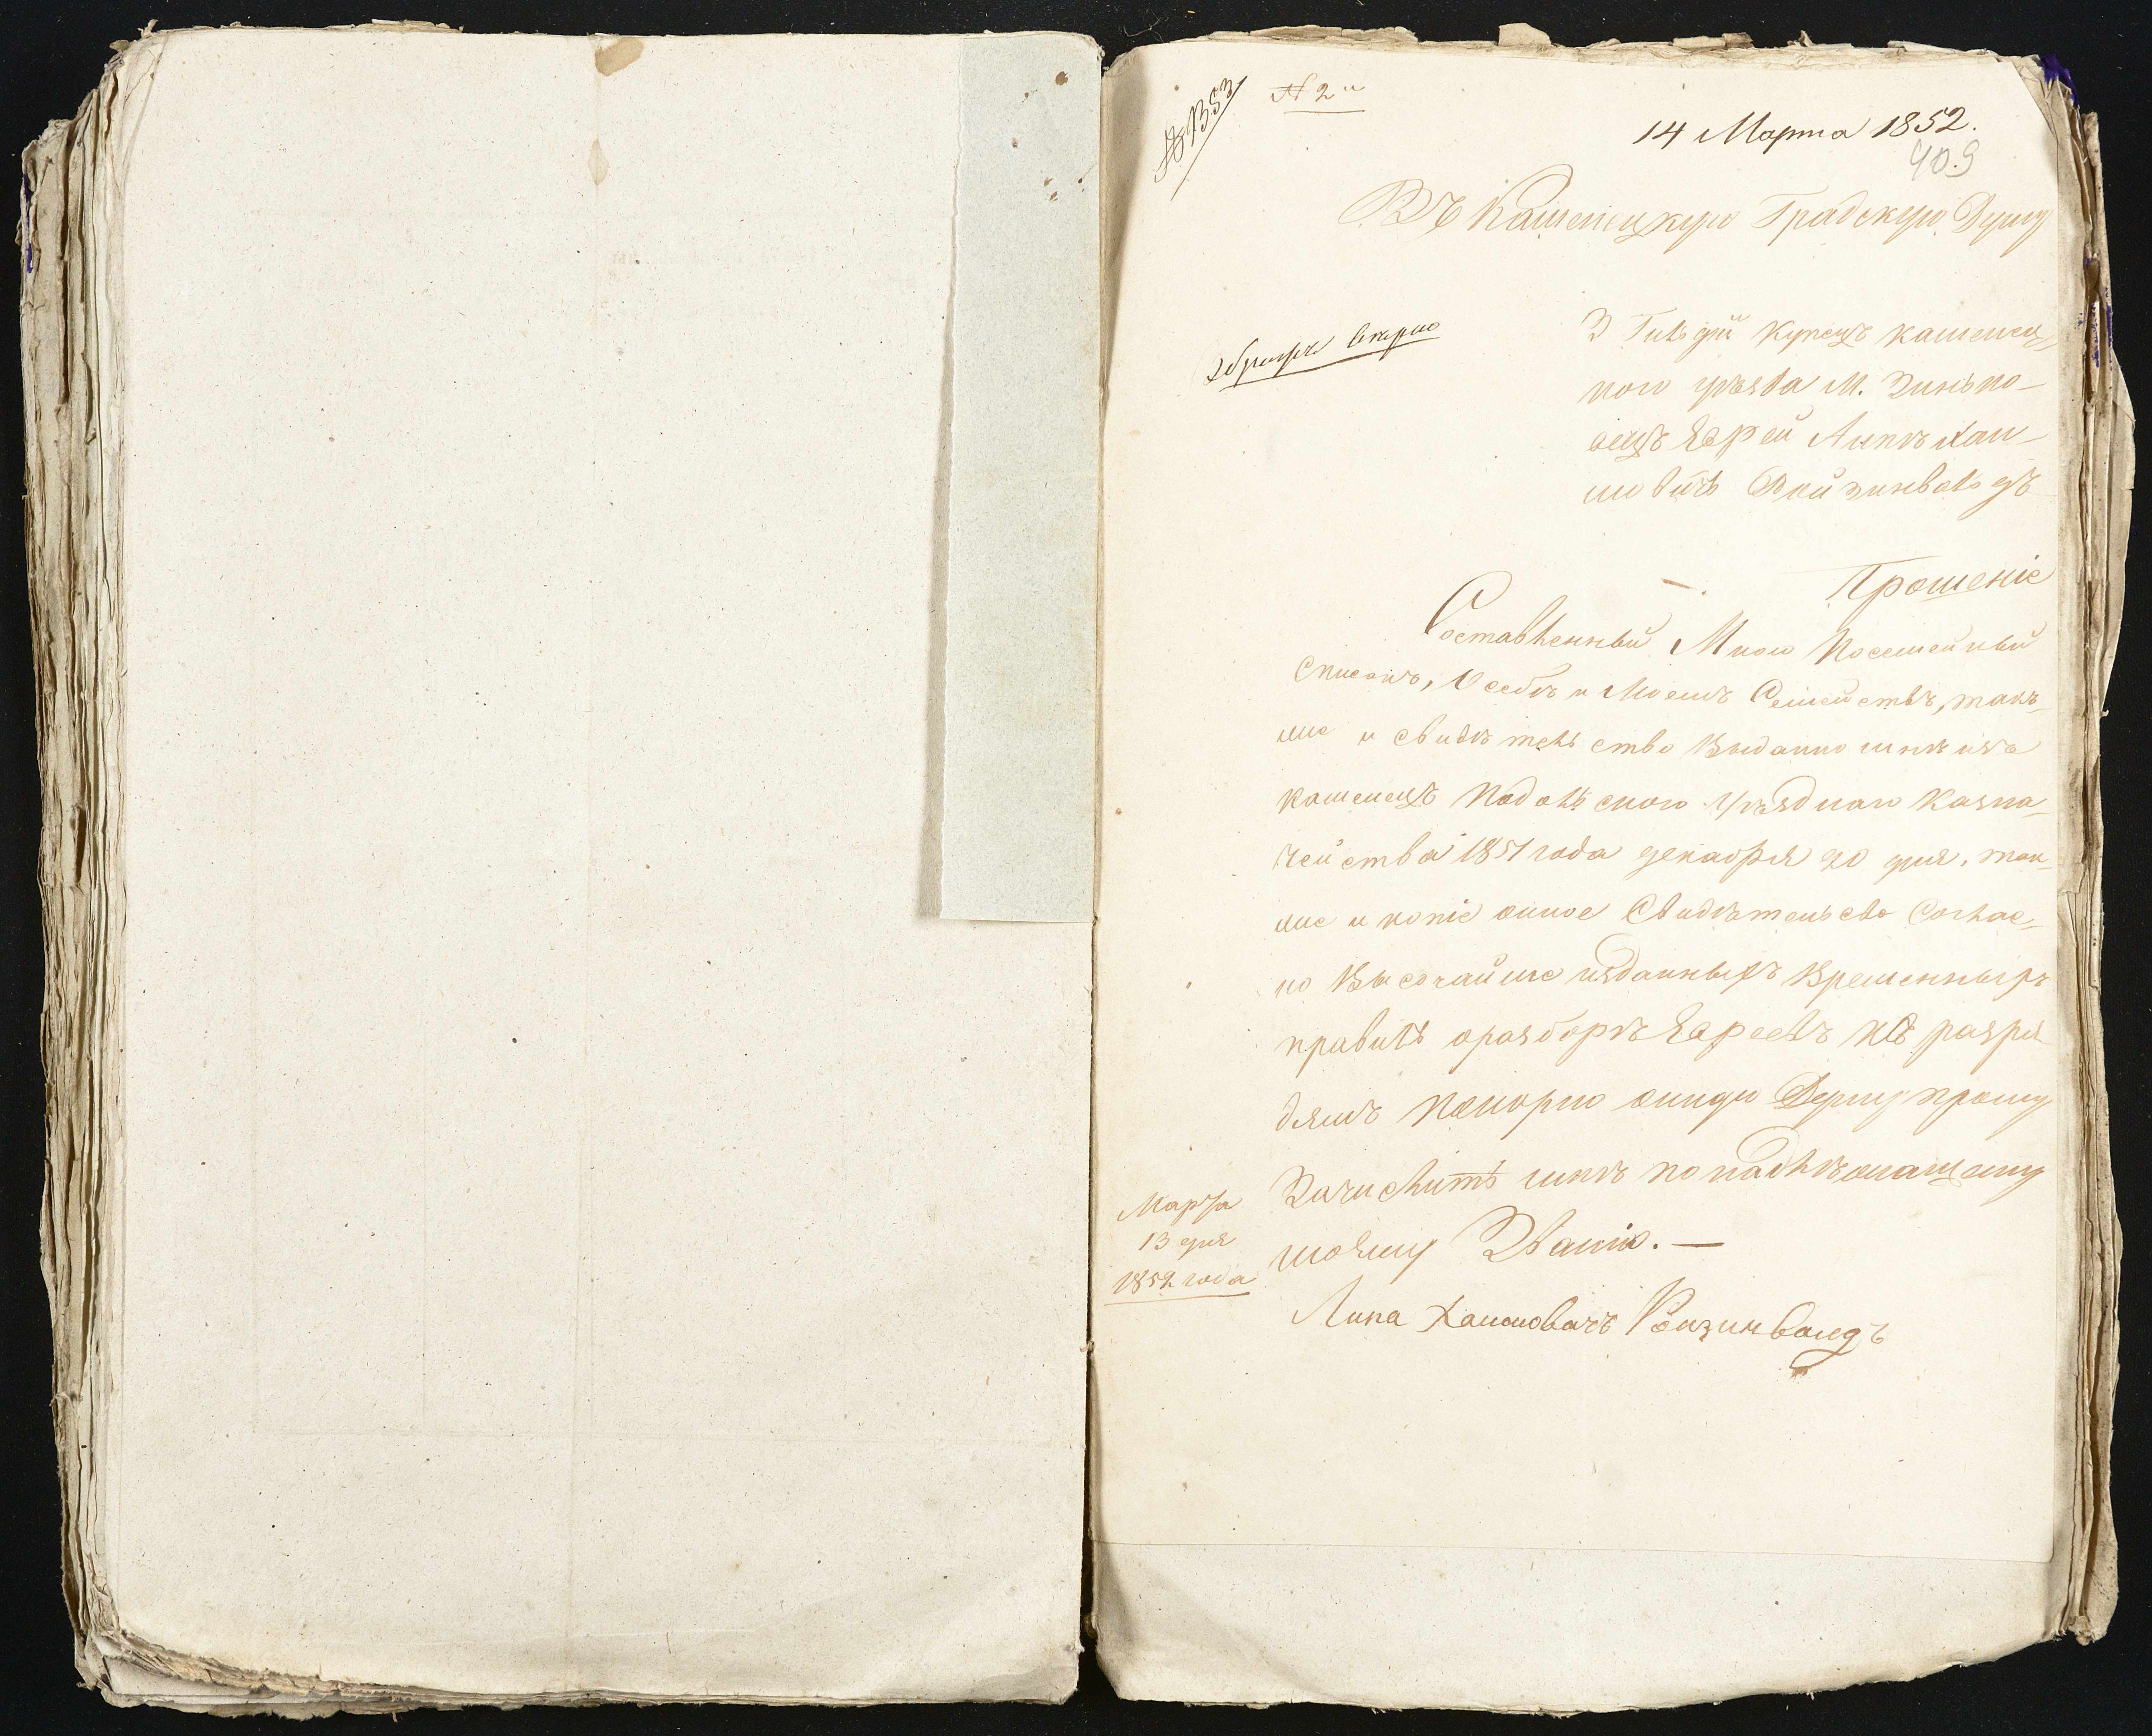 № 1353
№ 2й
14 Марта 1852.
409
Въ Каменецкую Градскую Думу
3 Гильдіи купецъ каменец-
кого уѣзда М. Зинько-
вецъ Еврей Липъ Хаи-
мовичъ Войзинвальдъ
Прошеніе
Составленный Мною Посемейный
Списокъ, О себѣ и Моемъ Семействѣ, такъ
же и свидѣтельство Выданно мнѣ изъ
каменецъ Подольского Уѣздного Казна-
чейства 1851 года декабря 20 дня, так-
же и копіе онное Свидѣтельсво Соглас-
но Высочайше изданныхъ Временныхъ
правилъ о разборѣ Евреевъ по разря-
дямъ Покорно онную Думу прошу
Зачислить мнѣ по надлѣжащему
моему Званію. —
Марта
13 дня
1852 года
Липа Хаимовачъ Воизинвалдъ